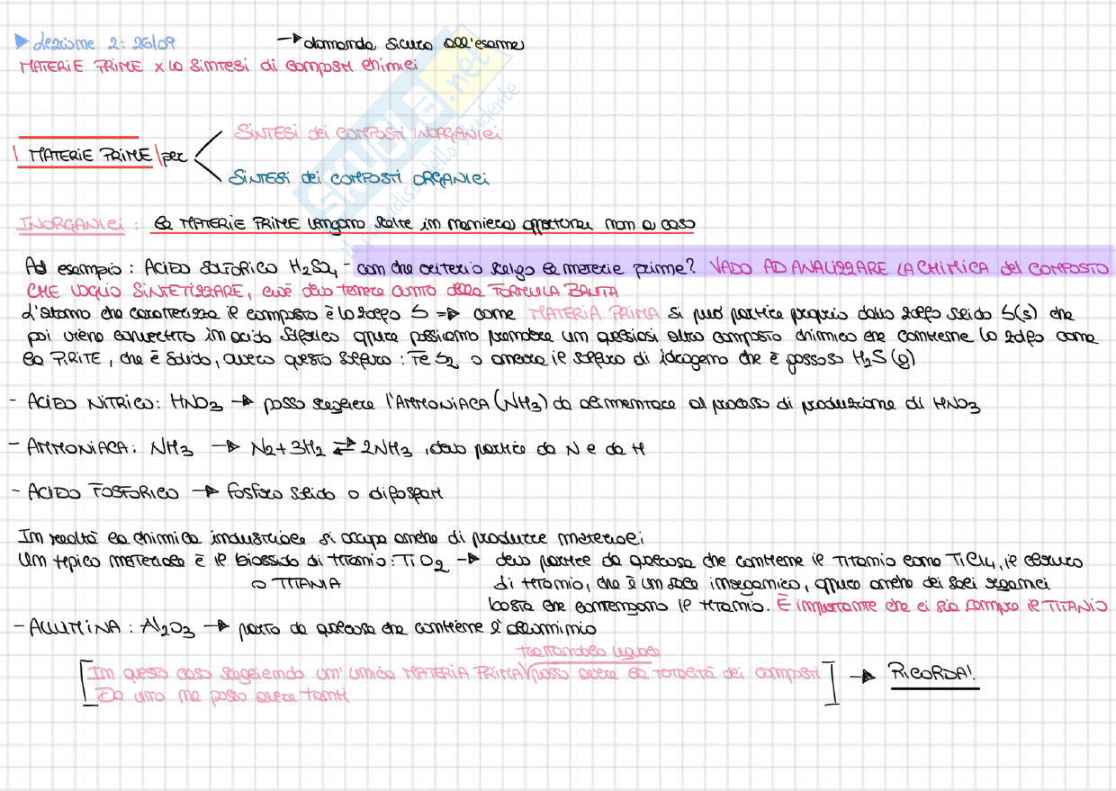 ▶ lezione 2: 26/09 → domanda sicura all'esame
MATERIE PRIME x la sintesi di composti chimici
SINTESI dei COMPOSTI INORGANICI
MATERIE PRIME per
SINTESI dei COMPOSTI ORGANICI
INORGANICI: le MATERIE PRIME vengono scelte in maniera opportuna non a caso
Ad esempio: ACIDO SOLFORICO H2SO4 - con che criterio scelgo le materie prime? VADO AD ANALIZZARE LA CHIMICA del COMPOSTO
CHE VOGLIO SINTETIZZARE, cioè devo tenere conto della FORMULA BRUTA
L'atomo che caratterizza il composto è lo zolfo S => come MATERIA PRIMA si può partire proprio dallo zolfo solido S(s) che
poi viene convertito in acido solforico oppure possiamo prendere un qualsiasi altro composto chimico che contiene lo zolfo come
la PIRITE, che è solido, ovvero questo solfuro: FeS2 o ancora il solfuro di idrogeno che è gassoso H2S(g)
- ACIDO NITRICO: HNO3 → posso scegliere l'AMMONIACA (NH3) da alimentare al processo di produzione di HNO3
- AMMONIACA: NH3 → N2+3H2 ⇄ 2NH3, devo partire da N e da H
- ACIDO FOSFORICO → fosforo solido o
In realtà la chimica industriale si occupa anche di produrre materiali
Un tipico materiale è il biossido di titanio: TiO2 → devo partire da qualcosa che contiene il TITANIO come TiCl4, il cloruro
o TITANIA di titanio, che è un sale inorganico, oppure anche dei sali organici
basta che contengano il titanio. È importante che ci sia sempre il TITANIO
- ALLUMINA: Al2O3 → parto da qualcosa che contiene l'alluminio
In questo caso scegliendo un'unica MATERIA PRIMA posso avere la dei composti → RICORDA!
Da uno ne posso avere tanti